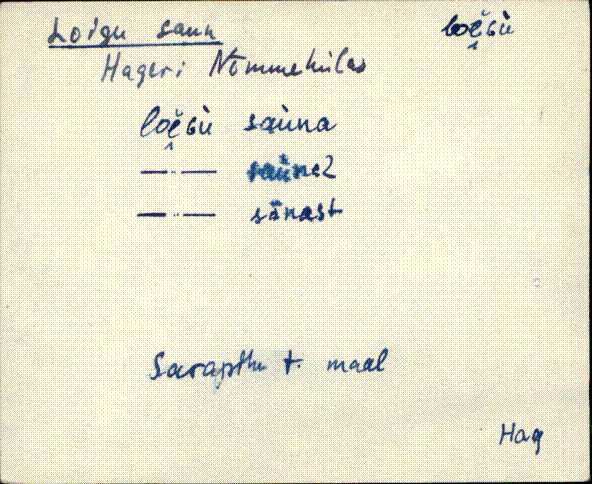 Loigu saun
loḙ̆Gù
Hageri Nõmmekülas
loḙ̆Gù saùna
—··— saùnaz
—··— sänast
Sarapthu t. maal
Hag